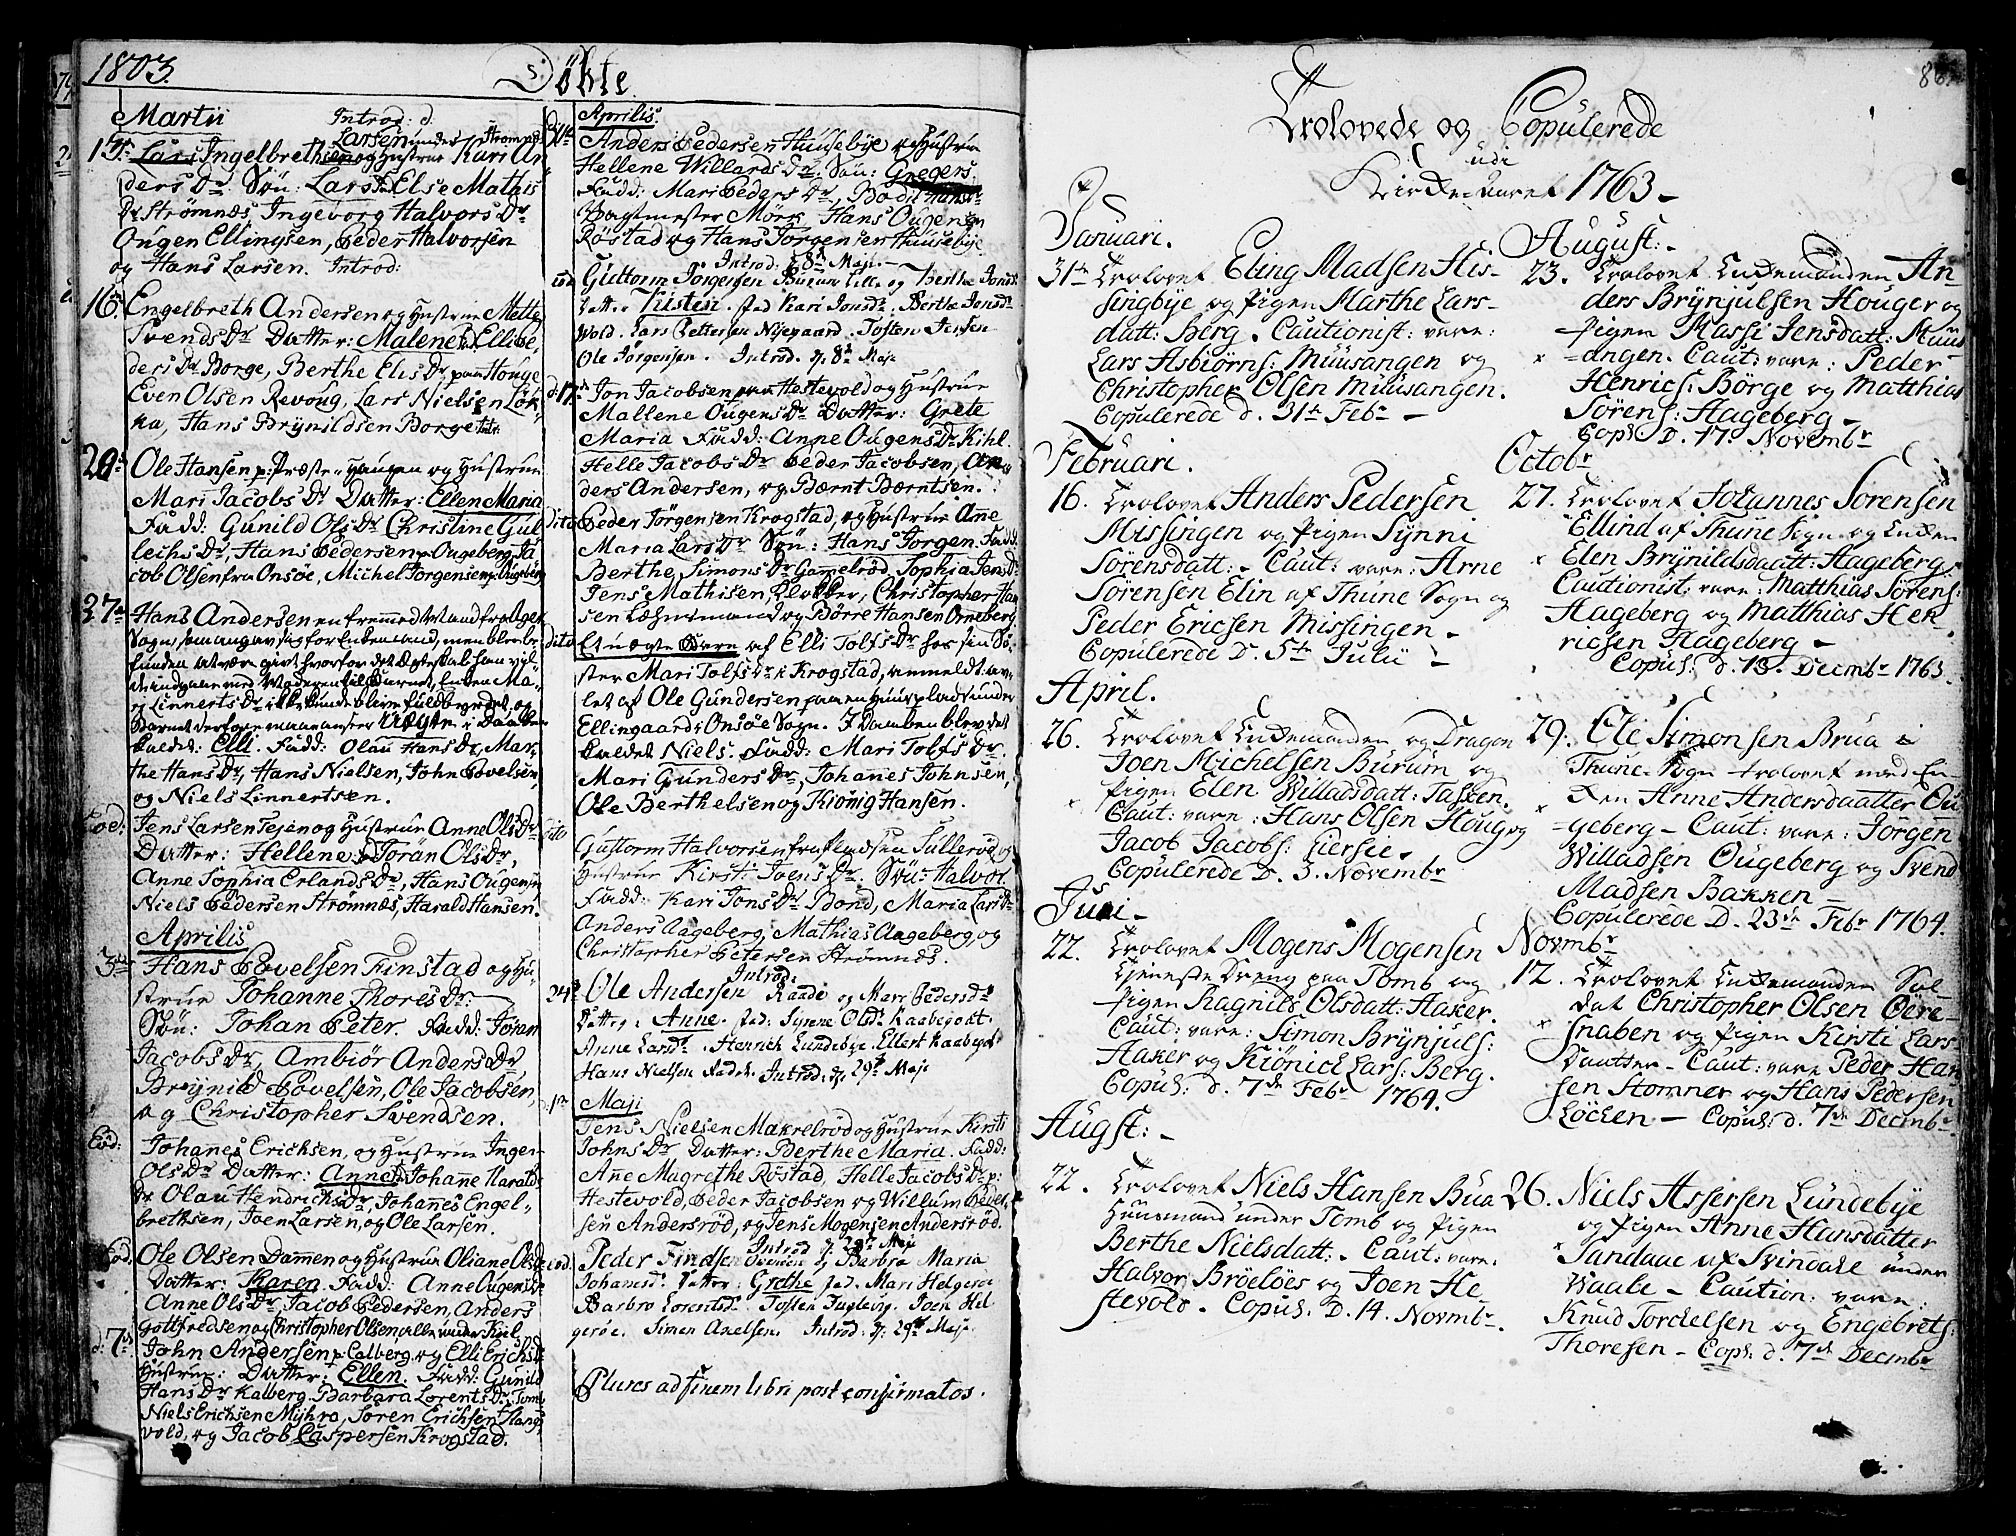 1803.
Døbte
Martii Introd: d:
Larsen under Strømnes
13de Lars Ingelbrethsen og Hustrue Kari An
ders Dr Søn: Lars. Else Mathis
Dr Strømnæs, Ingeborg Halvors Dr
Ougen Ellingsen, Peder Halvorsen
og Hans Larsen. Introd:
16. Engelbreth Andersen og Hustrue Mette
Svends Dr Datter: Malene. Elli Pe,
ders Dr Borge, Berthe Elis Dr paa Houge
Even Olsen Revoug, Lars Nielsen Løk,
ka, Hans Brynildsen Borge Intr:
20de Ole Hansen p: Præste-Haugen og Hustrue
Mari Jacobs Dr Datter: Ellen Maria
Fadd: Gunild Ols Dr Christine Gul
lechs Dr, Hans Pedersen p: Ougeberg, Ja
cob Olsen fra Onsøe, Michel Jørgensen p: Ougeberg
27de Hans Andersen en fremmed Mand fra
Sogn, som angav sig for Enkemand, men blev be,
funden at være givt hvorfor det Ægteskab han vil,
de indgaae med Moderen til Barnet, Enken Ma,
ri Linnerts Dr ikke kunde blive fuldbyrdet, og
Barnet derfore maa ansees Uægte i Daaben
kaldet: Elli. Fadd: Olau Hans Dr, Mar,
the Hans Dr, Hans Nielsen, John Povelsen,
og Niels Linnertsen.
Eod: Jens Larsen Tejen og Hustrue Anne Ols Dr
Datter: Hellene. Jøran Ols Dr,
Anne Sophia Erlands Dr, Hans Ougensen
Niels Pedersen Strømnæs, Harald Hansen.
Aprilis
3die Hans Povelsen Finstad og Hu
strue Johanne Thores Dr.
Søn: Johan Peter. Fadd: Jøran
Jacobs Dr, Ambiør Anders Dr
Brynild Povelsen, Ole Jacobsen,
og Christopher Svendsen.
Eod: Johanes Erichsen, og Hustrue Inger
Ols Dr Datter: Anne. Johanne Haralds
Dr Olau Hendrichs Dr, Johanes Engel,
brethsen, Joen Larsen, og Ole Larsen.
Eod. Ole Olsen Dammen og Hustrue Oliane Ols Dr
Datter: Karen Fadd: Anne Ougens Dr
Anne Ols Dr, Jacob Pedersen, Anders
Gottfredsen og Christopher Olsen alle under Kiel,
d: 7de John Andersen p: Calberg, og Elli Erichs Dr
Hustrue: Datter: Ellen. Fadd: Gunild
Hans Dr Kalberg, Barbara Lorents Dr Tom,
Niels Erichsen Myhra, Søren Erichsen Stang,
vold, og Jacob Caspersen Krogstad.
Aprilis.
Anders Pedersen Huusebye og Hustrue
Hellene Willards Dr, Søn: Gregers
Fadd: Mari Peders Dr, Bodil
Vagtmester Mørk, Hans Ougensen
Røstad og Hans Jørgensen Huusebye
Introd: d. 8de Maji. -
eod Guttorm Jørgensen Buxun Lille og Berthe Jonsd.
datter Kristen. fad Kari Jonsdr. Berthe Jonsdr
Wold. Lars Pettersen Nyegaard. Tosten Jensen
Ole Jørgensen. Introd. d. 8de Maje
d: 17de Jon Jacobsen paa Hestevold og Hustrue
Mallene Ougens Dr Datter: Grete
Maria Fadd: Anne Ougens Dr Kihl.
Helle Jacobs Dr Peder Jacobsen, An
ders Andersen, og Bærnt Bærntsen.
dito Peder Jørgensen Krogstad, og Hustrue Ane
Maria Lars Dr Søn: Hans Jørgen. Fadd:
Berthe Simons Dr Gammelrød, Sophia Jens Dr
Jens Mathisen, Klokker, Christopher Han
sen Læhnsmand og Børre Hansen Orneberg
dito Et uægte Barn af Elli Tolfs Dr hos sin Sø-
ster Mari Tolfs Dr i Krogstad, anmeldt av-
let af Ole Gundersen paa en Huusplads under
Ellingaard i Onsøe Sogn. I Daaben blev det
kaldet Niels. Fadd: Mari Tolfs Dr.
Mari Gunders Dr, Johannes Johnsen,
Ole Berthelsen og Kiønig Hansen.
dito Guttorm Halvorsen fra Pladsen Sullerød og
Hustrue Kirsti Joens Dr. Søn: Halvor.
Fadd: Kari Jons Dr Bond, Maria Lars Dr
Anders Aageberg, Mathias Aageberg, og
Christopher Petersen Strømnæs.
Introd:
24de Ole Andersen Raade og Mari Pedersdr
Datter: Anne. fad: Syrene Olsdr Kaabegodt.
Anne Larsdr. Henrich Lundebye. Ellert Kaabegodt
Hans Nielsen Fadek. Introd: d. 29de Maje
Maji
1ste Jens Nielsen Makrelrød og Hustrue Kirsti
Johns Dr Datter: Berthe Maria. Fadd:
Ane Magrethe Røstad, Helle Jacobs Dr p:
Hestevold, Peder Jacobsen og Willum Peder
sen Andersrød, og Jens Mogensen Andersrød.
Introd d. 29de Maje
eod. Peder Findsen og Barbro Maria
Johanesdr Datter: Grethe fad. Mari Helgerøe
Barbro Lorentsdr Tosten Fugleviig. Joen Hel
gerøe. Simen Axelsen. Introd: d. 29de Maje.
Plures ad finem libri post confirmatos.
Trolovede og Copulerede
udi
Kirke-Aaret 1763 -
Januari.
31te Trolovet Eling Madsen His-
singbye og Pigen Marthe Lars-
datt: Berg. Cautionist: vare:
Lars Asbiörns: Muusangen og
Christopher Olsen Muusangen.
Copulerede d. 31te Febr -
Februari.
16. Trolovet Anders Pedersen
Missingen og Pigen Synni
Sörensdatt: - Caut: vare: Arne
Sörensen Elin af Thune Sogn og
Peder Ericsen Missingen -
Copulerede D. 5te Julii -
April.
26. Trolovet Enkemanden og Dragon
Joen Michelsen Burum og
Pigen Elen Willadsdatt: Tasken.
Caut: vare: Hans Olsen Houg og
Jacob Jacobs: Eiersee.
Copulerede D. 3. Novembr
Juni -
22. Trolovet Mogens Mogensen
Tjeneste Dreng paa Tomb og
Pigen Ragnild Olsdatt: Haker.
Caut: vare: Simon Brynjuls:
Aaker og Kiönich Lars: Berg.
Copul: d. 7de Febr 1764.
Augst: -
22. Trolovet Niels Hansen Bua
Huusmand under Tomb og Pigen
Berthe Nielsdatt: - Caut: vare:
Halvor Bröelöes og Joen He-
stevold. Copul: D. 14. Novmbr.
August: -
23. Trolovet Enkemanden An-
ders Brynjulsen Houger og
Pigen Massi Jensdatt: Muus
-angen. Caut: vare: Peder
Henrics: Börge og Matthias
Sörens: Hageberg -
Copl: D. 17de Novembr
Octobr
27. Trolovet Johannes Sörensen
Ellind af Thune Sogn og Enken
Elen Brynildsdaatt: Hageberg
Cautionist: vare: Matthias Sörens:
Hageberg og Matthias Hen-
ricsen Hageberg -
Copul: d. 13. Decmbr 1763
29. Ole Simonsen Brua i
Thune-Sogn trolovet med En-
ken Anne Andersdaatter Ou
-geberg - Caut: vare: Jörgen
Willadsen Ougeberg og Svend
Madsen Bakken
Copulerede D. 23de Febr 1764.
Novmbr
12. Trolovet Enkemanden Sol-
dat Christopher Olsen Oëre-
snaben og Pigen Kirsti Lars
Daatter - Caut: vare Peder Han
sen Stomner og Hans Pedersen
Löcken - Copul: d. 7de Decmbr.
26. Niels Assersen Lundebye
og Pigen Anne Hansdatter
Sandaae af Svindahl under
Waale - Caution: vare:
Knud Tordelsen og Engebrets:
Thoresen - Copl: d. 7de Decmbr